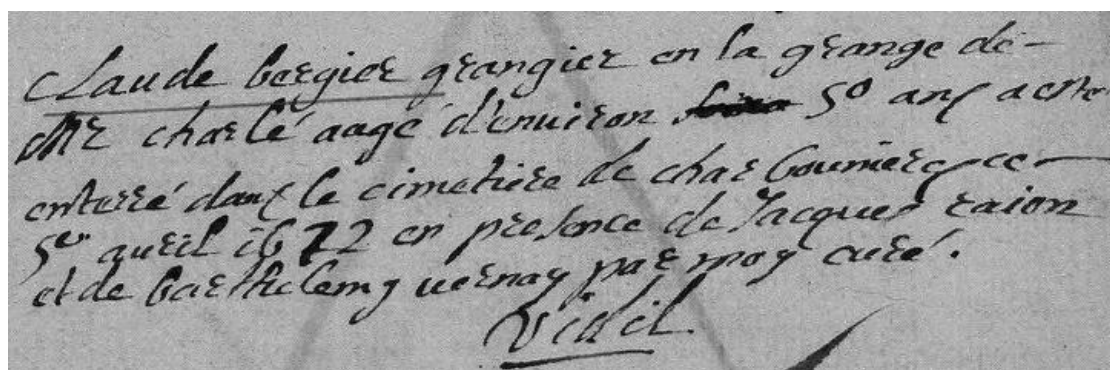 claude bergier grangier en la grange de-
Mr charlé aagé d'enuiron 50 ans a este
enterré dans le cimetiere de charbonnieres ce
5e auril 1672 en presence de Jacques raion
et de barthelemy uernay par moy curé.
Vidil